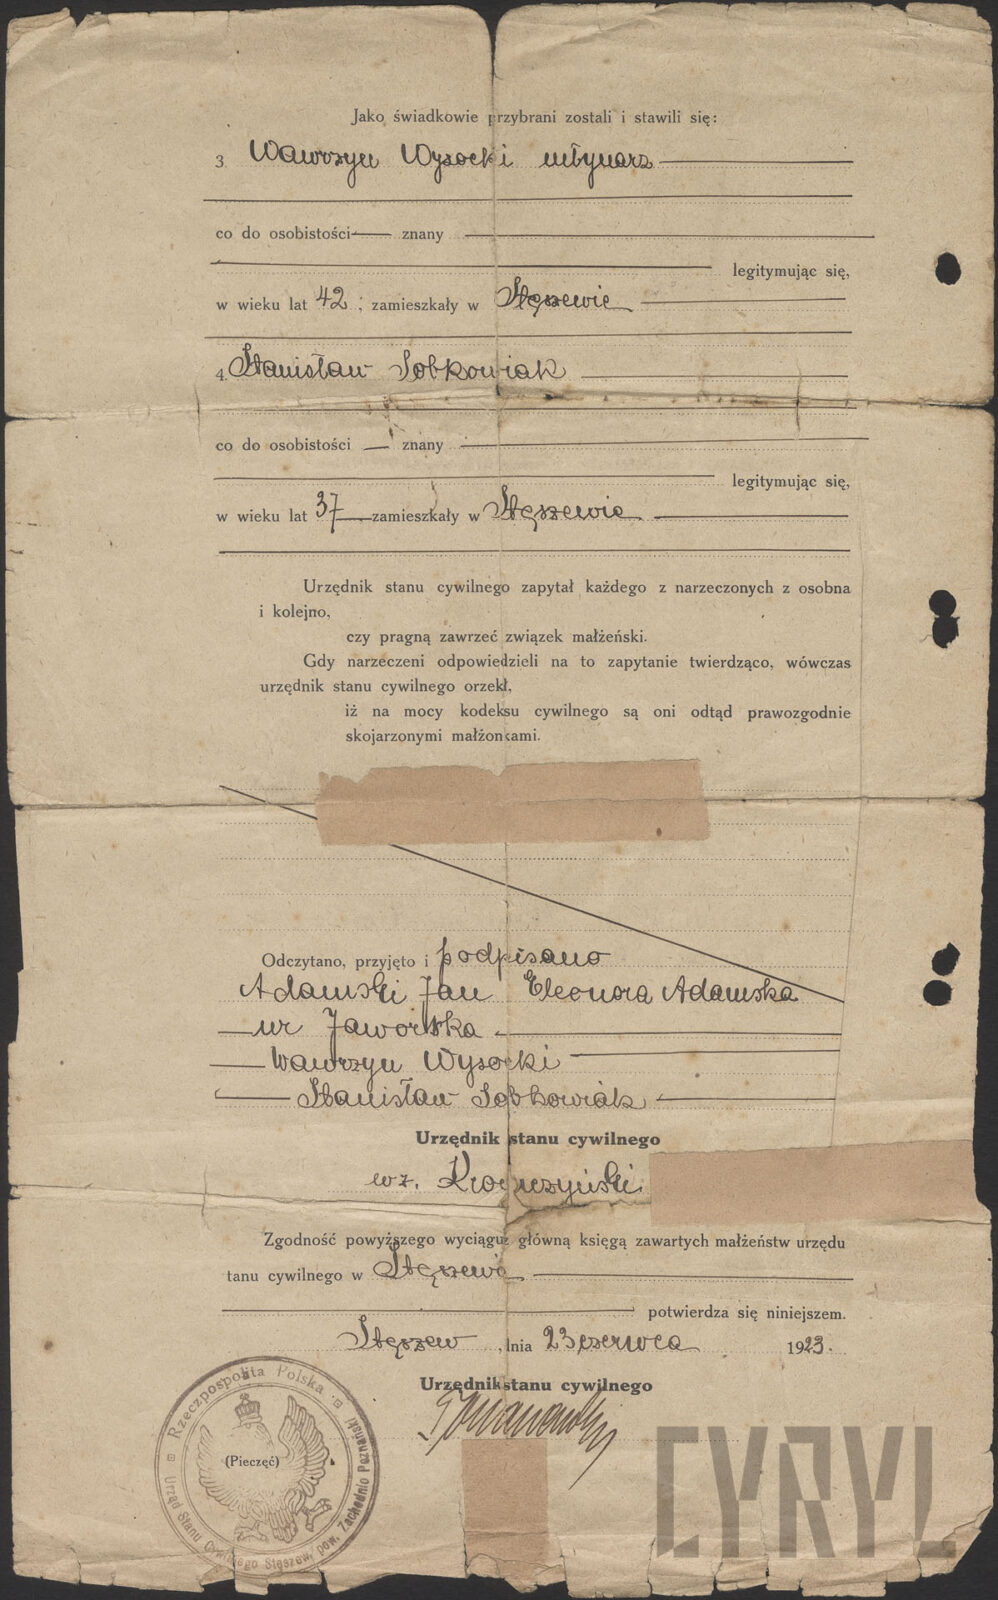 Jako świadkowie przybrani zostali i stawili się:
3. Wawrzyn Wysocki młynarz
co do osobistości znany
legitymując się,
w wieku lat 42, zamieszkały w Stęszewie
4. Stanisław Sobkowiak
co do osobistości znany
legitymując się,
w wieku lat 37 zamieszkały w Stęszewie
Urzędnik stanu cywilnego zapytał każdego z narzeczonych z osobna
i kolejno,
czy pragną zawrzeć związek małżeński.
Gdy narzeczeni odpowiedzieli na to zapytanie twierdząco, wówczas
urzędnik stanu cywilnego orzekł,
iż na mocy kodeksu cywilnego są oni odtąd prawozgodnie
skojarzonymi małżonkami.
Odczytano, przyjęto i podpisano
Adamski Jan Eleonora Adamska
ur Jaworska
Wawrzyn Wysocki
Stanisław Sobkowiak
Urzędnik stanu cywilnego
wz.
Zgodność powyższego wyciągu z główną księgą zawartych małżeństw urzędu
tanu cywilnego w Stęszewie
potwierdza się niniejszem.
Stęszew, dnia 23 czerwca 1923.
Urzędnik stanu cywilnego
(Pieczęć)
Rzeczpospolita Polska
Urząd Stanu Cywilnego Stęszew, pow. Zachodnio Poznański
CYRYL